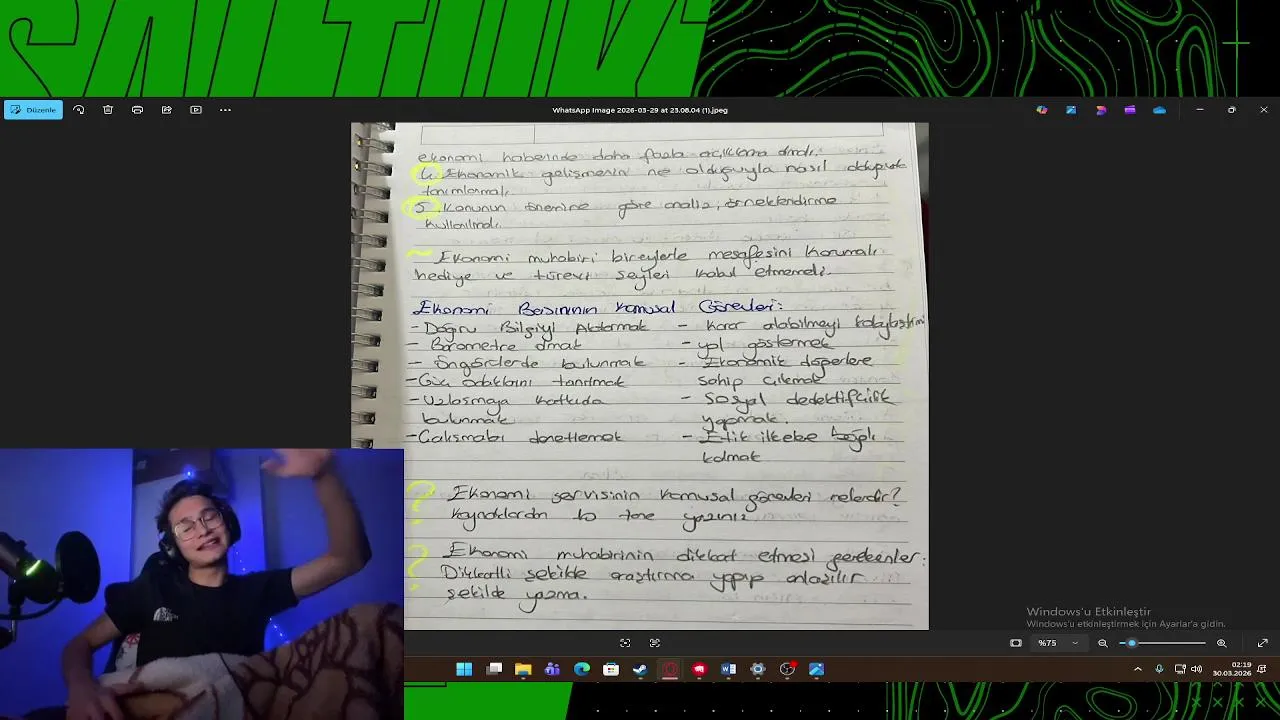 Düzenle
WhatsApp Image 2026-03-29 at 23.08.04 (1).jpeg
ekonomi haberinde daha fazla açıklama olmalı.
4. Ekonomik gelişmenin ne olduğuyla nasıl
tanımlamalı.
5. Konunun önemine göre analiz, örneklendirme
kullanılmalı.
~ Ekonomi muhabiri bireylerle mesafesini korumalı
hediye ve türevi şeyleri kabul etmemeli.
Ekonomi Basınının Kamusal Görevleri:
- Doğru Bilgiyi Aktarmak - Karar alabilmeyi
- Barometre olmak - yol göstermek
- Öngörülerde bulunmak - Ekonomik değerlere
- Güç odaklarını tanıtmak sahip çıkmak
- Uzlaşmaya katkıda - Sosyal dedektiflik
bulunmak yapmak.
- Çalışmaları denetlemek - Etik ilkelere bağlı
kalmak
? Ekonomi servisinin kamusal görevleri nelerdir?
Kaynaklardan 10 tane yazınız.
? Ekonomi muhabirinin dikkat etmesi gerekenler:
Dikkatli şekilde araştırma yapıp anlaşılır
şekilde yazma.
Windows'u Etkinleştir
Windows'u etkinleştirmek için Ayarlar'a gidin.
%75
02:19
30.03.2026